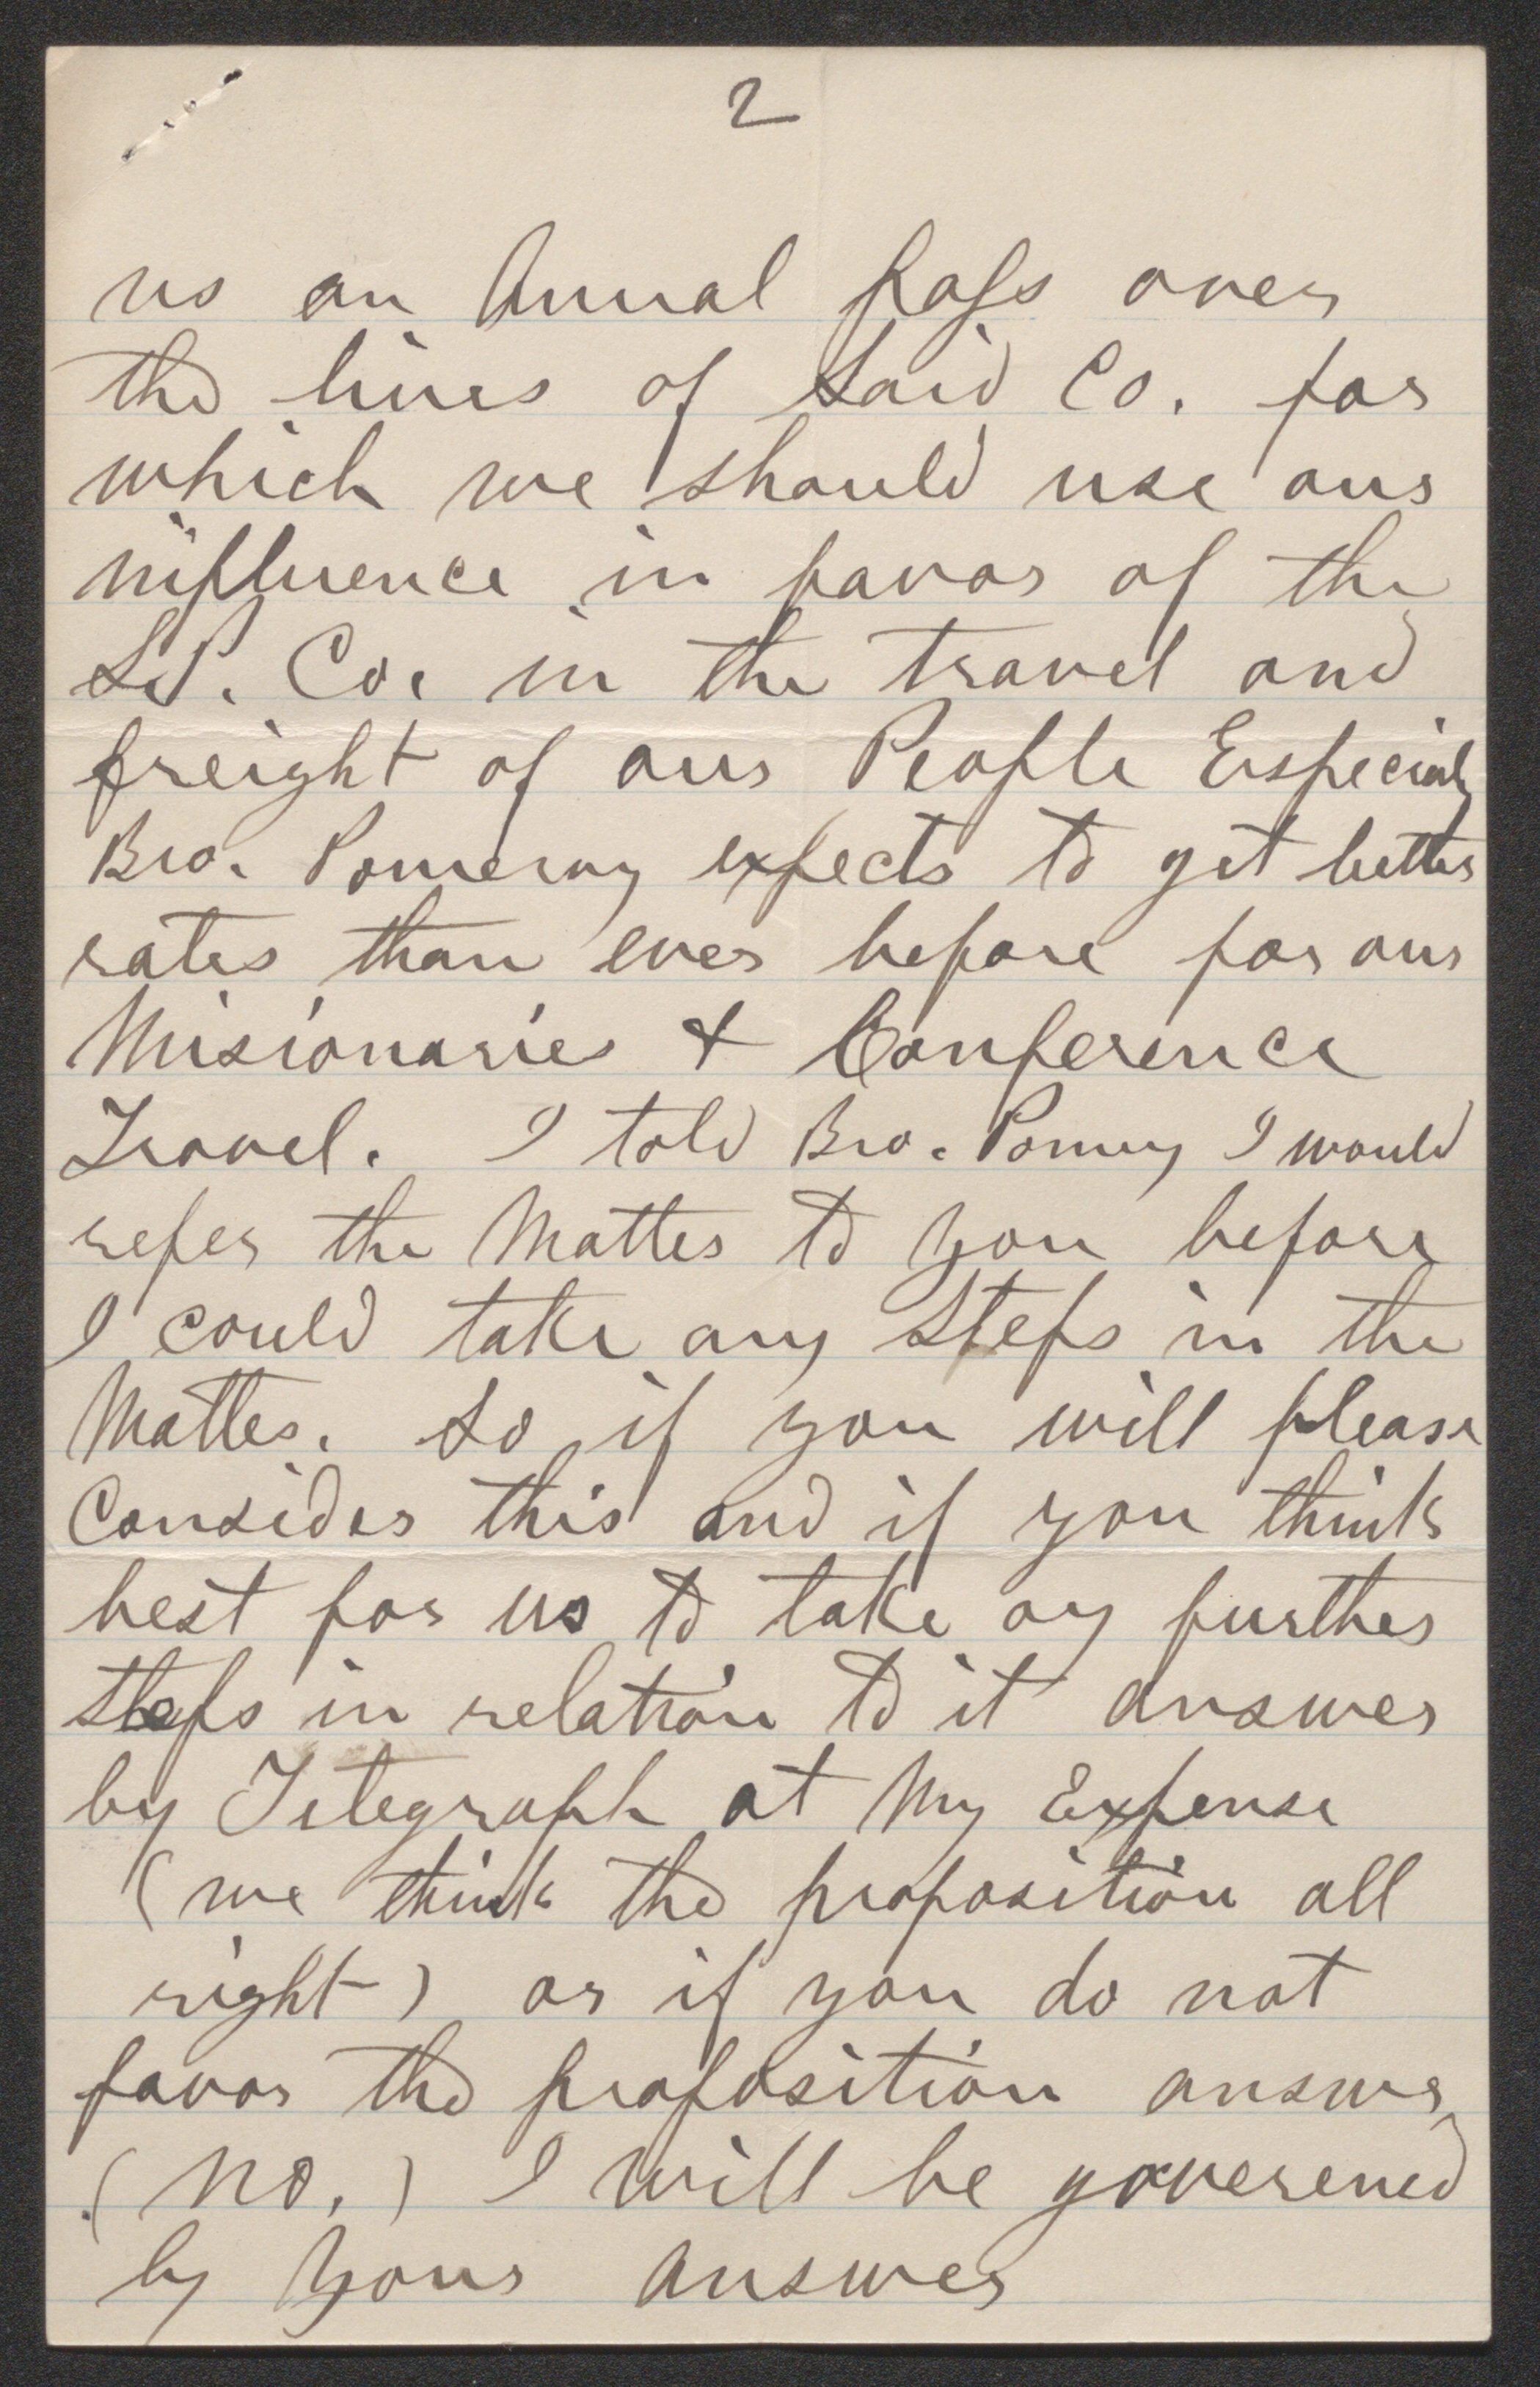 2
us an Annual Pass over
the lines of Said Co. for
which we should use our
influence in favor of the
S.P. Co. in the travel and
freight of our People Especialy
Bro. Pomeroy expects to get better
rates than ever before for our
Misionaries & Conference
Travel. I told Bro. Pomry I would
refer the Matter to you before
I could take any Steps in the
Matter. So if you will please
Consider this and if you think
best for us to take any further
steps in relation to it answer
by Telegraph at My Expense
(we think the proposition all
right) or if you do not
favor the proposition answer
(No.) I will be goverened
by your answer